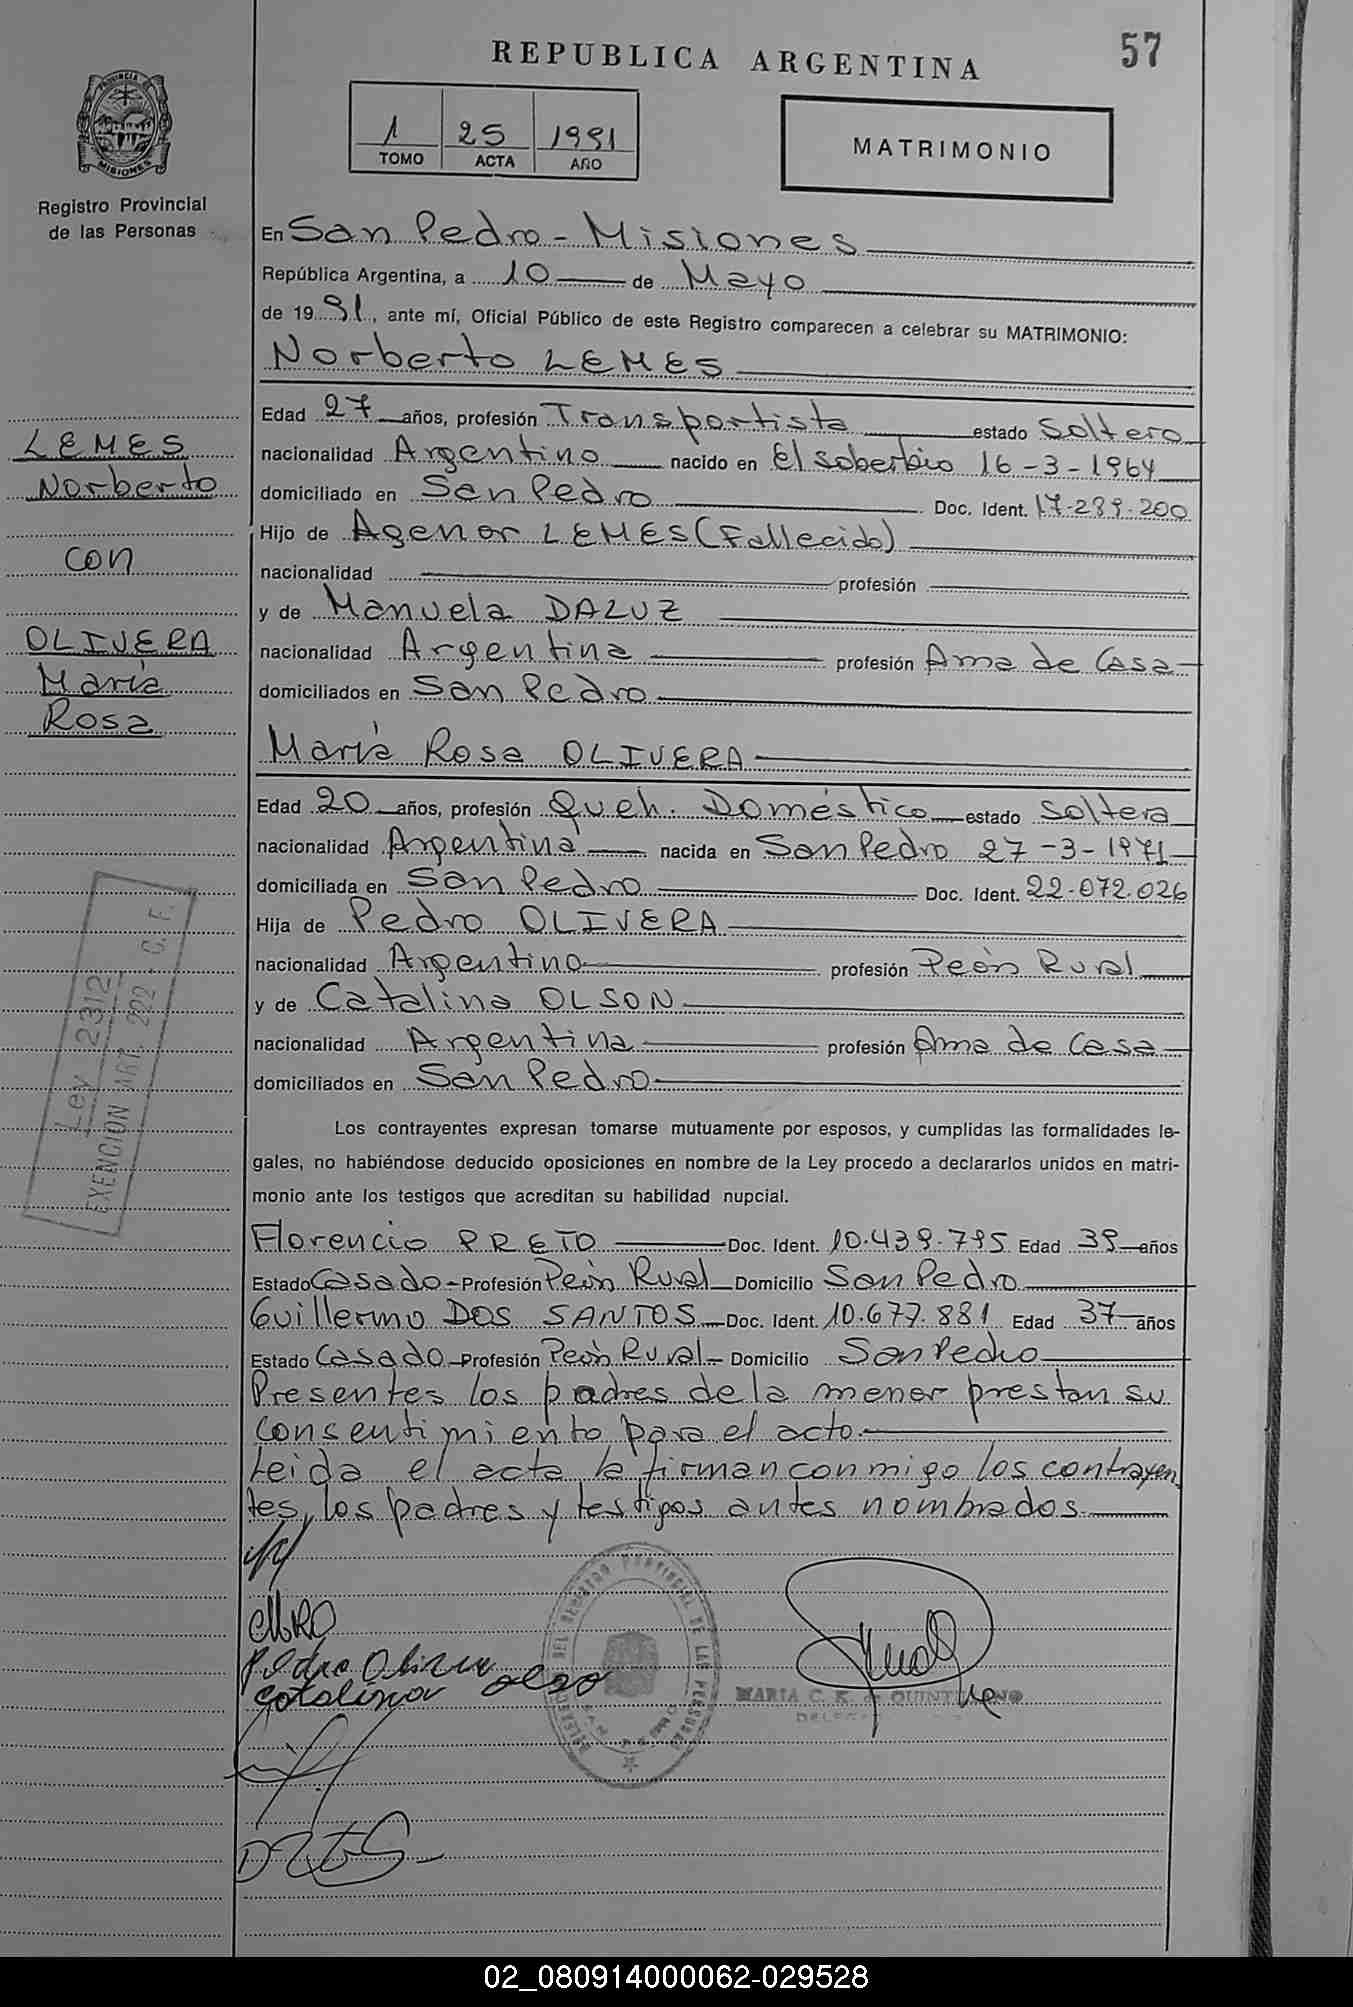 57
REPUBLICA ARGENTINA
PROVINCIA
MISIONES
1 25 1991
TOMO ACTA AÑO
MATRIMONIO
Registro Provincial
de las Personas
En San Pedro - Misiones
República Argentina, a 10 de Mayo
de 19 91, ante mí, Oficial Público de este Registro comparecen a celebrar su MATRIMONIO:
Norberto LEMES
Edad 27 años, profesión Transportista estado Soltero
nacionalidad Argentino nacido en El soberbio 16-3-1964
domiciliado en San Pedro Doc. Ident. 17.289.200
Hijo de Agenor LEMES (Fallecido)
nacionalidad profesión
y de Manuela DALUZ
nacionalidad Argentina profesión Ama de Casa
domiciliados en San Pedro
LEMES
Norberto
con
OLIVERA
María
Rosa
María Rosa OLIVERA
Edad 20 años, profesión Queh. Doméstico estado Soltera
nacionalidad Argentina nacida en San Pedro 27-3-1971
domiciliada en San Pedro Doc. Ident. 22.072.026
Hija de Pedro OLIVERA
nacionalidad Argentino profesión Peón Rural
y de Catalina OLSON
nacionalidad Argentina profesión Ama de Casa
domiciliados en San Pedro
Ley 2312
EXENCION ART. 222 - C. F.
Los contrayentes expresan tomarse mutuamente por esposos, y cumplidas las formalidades le-
gales, no habiéndose deducido oposiciones en nombre de la Ley procedo a declararlos unidos en matri-
monio ante los testigos que acreditan su habilidad nupcial.
Florencio PRETO Doc. Ident. 10.439.795 Edad 39 años
Estado Casado - Profesión Peón Rural Domicilio San Pedro
Guillermo DOS SANTOS Doc. Ident. 10.677.881 Edad 37 años
Estado Casado Profesión Peón Rural - Domicilio San Pedro
Presentes los padres de la menor prestan su
consentimiento para el acto
Leida el acta la firman conmigo los contrayen
tes, los padres y testigos antes nombrados
MRO
Pedro
Catalina
DEL REGISTRO PROVINCIAL DE LAS PERSONAS
MARIA C. K. de
02_080914000062-029528